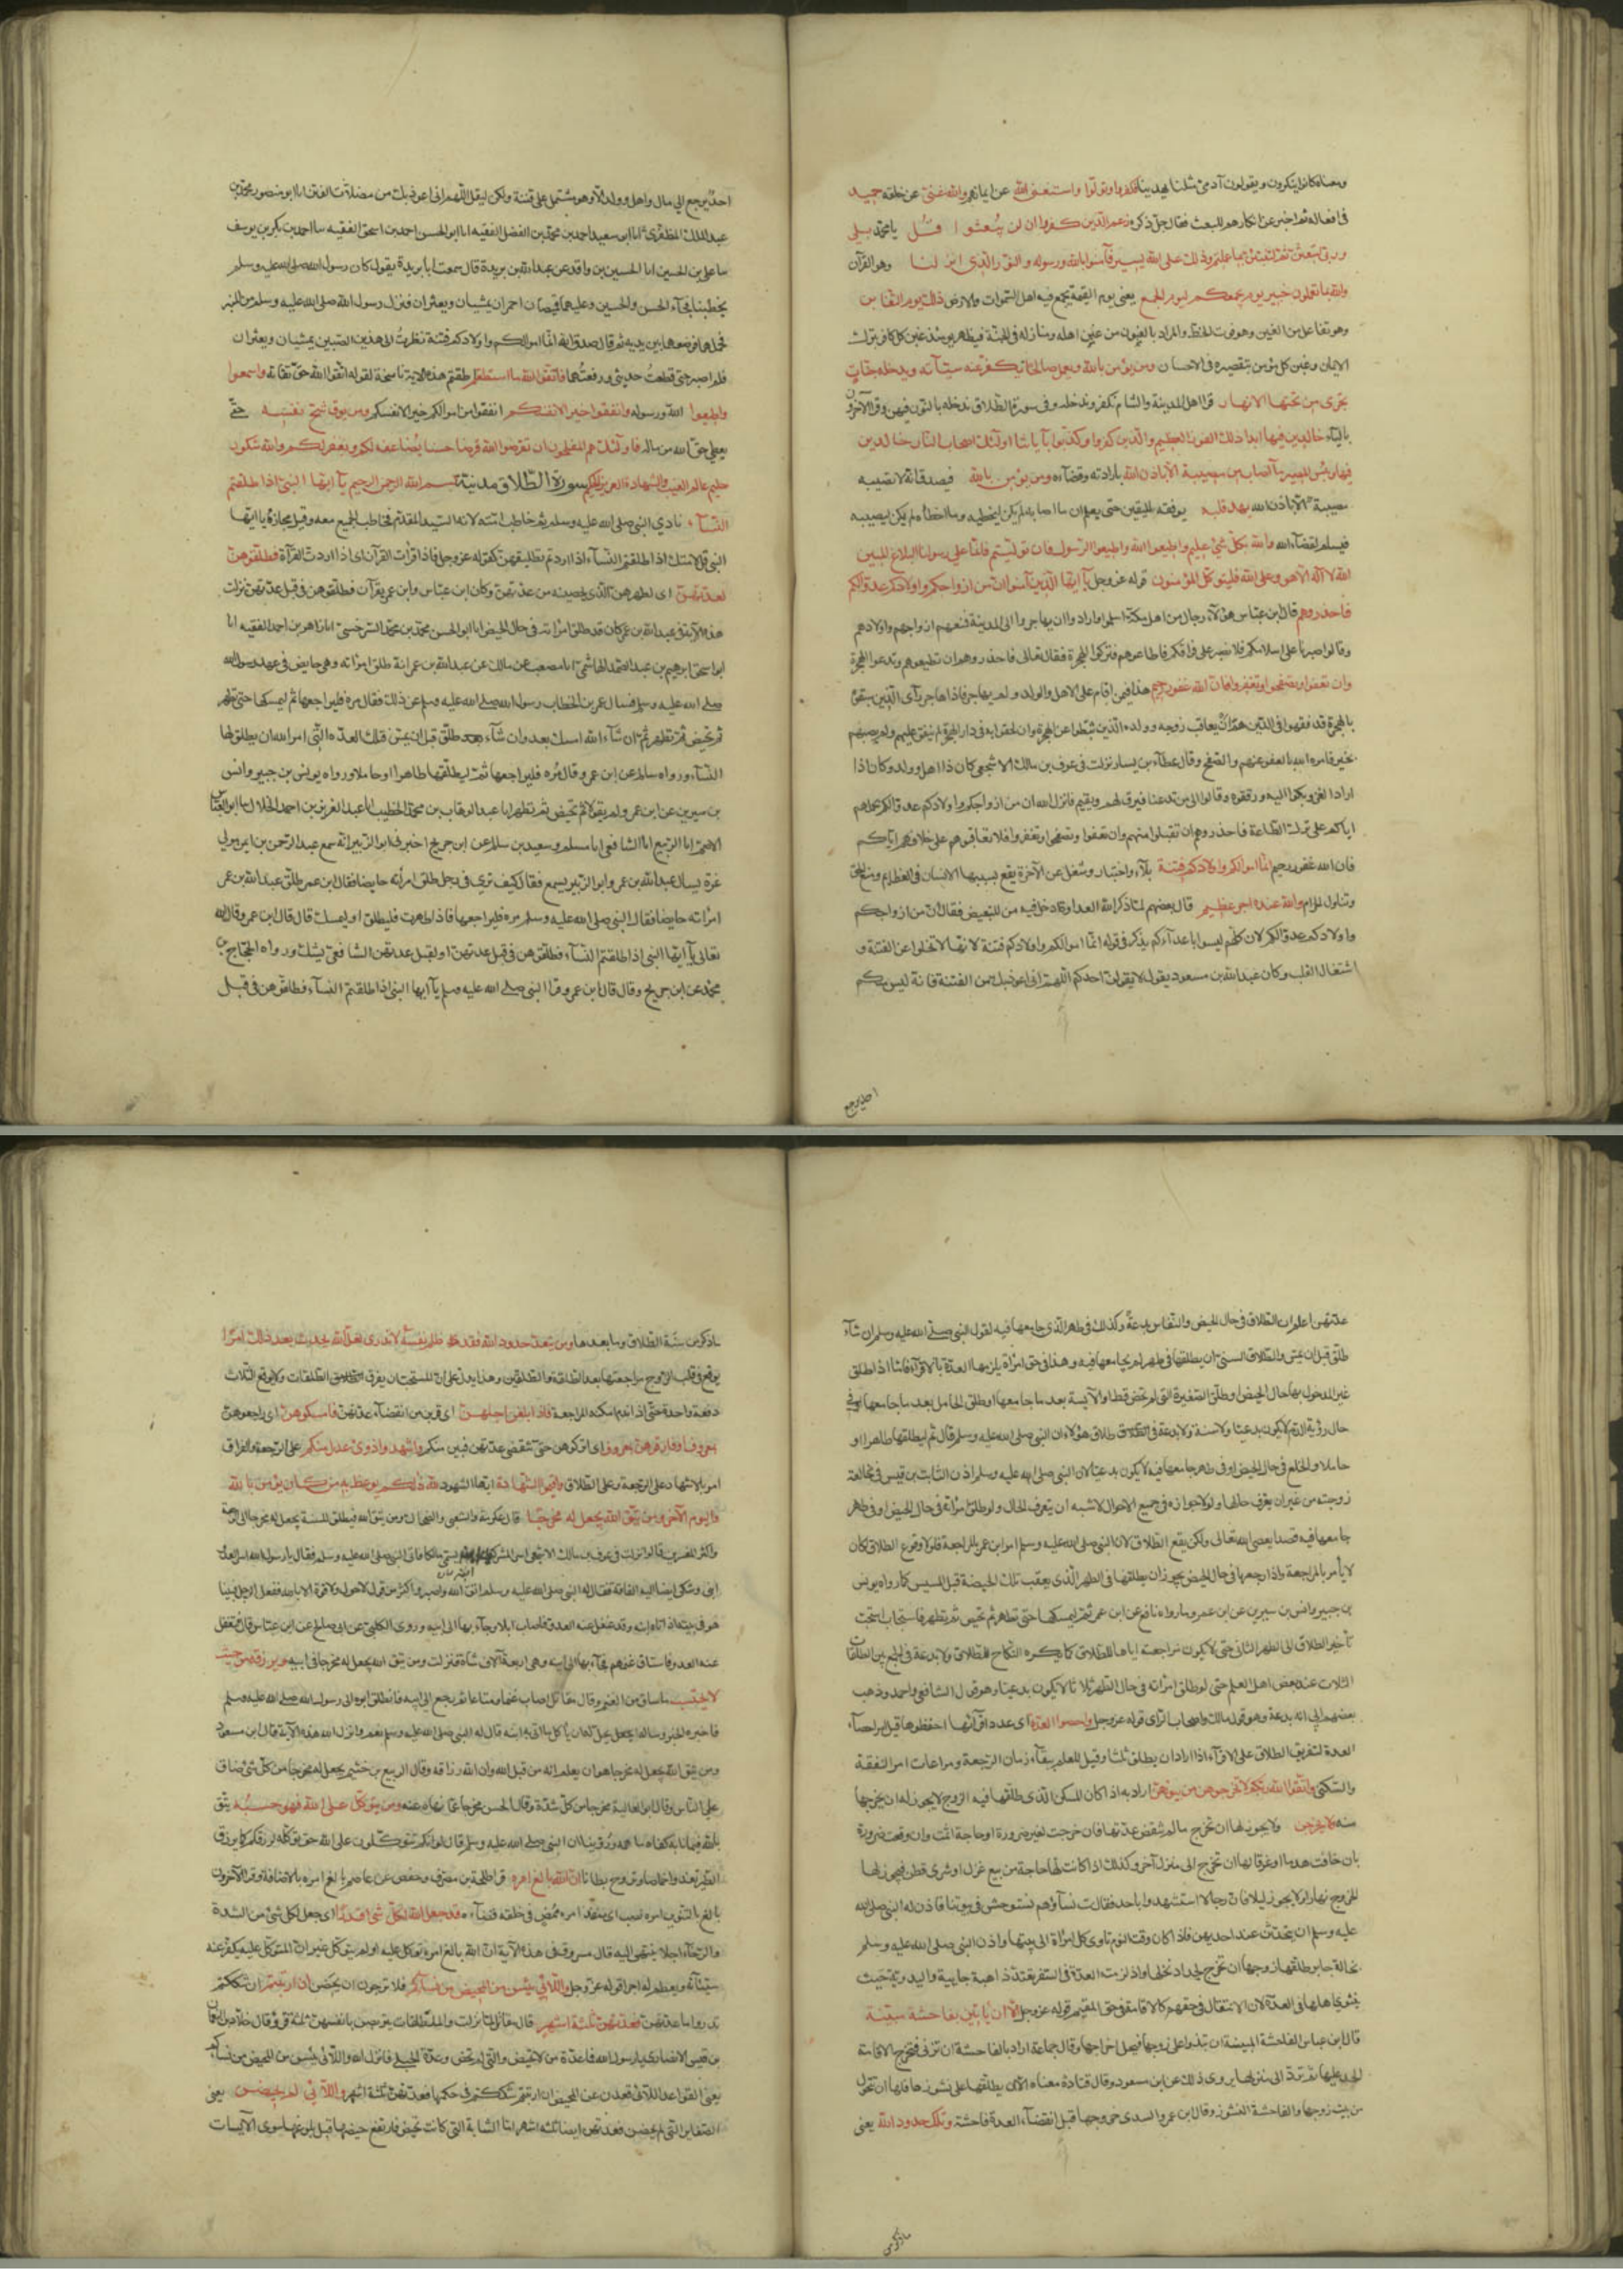 ومعناه كانوا ينكرون ويقولون آدمي مثلنا يهدينا فكفروا وتولوا واستغنى الله عن ايمانهم والله غني عن خلقه حميد
في افعاله ثم اخبر عن انكارهم البعث فقال جل ذكره زعم الذين كفروا ان لن يبعثوا قل يا محمد بلى
وربي لتبعثن ثم لتنبؤن بما عملتم وذلك على الله يسير فآمنوا بالله ورسوله والنور الذي انزلنا وهو القرآن
والله بما تعملون خبير يوم يجمعكم ليوم الجمع يعني يوم القيمة يجمع فيه اهل السموات والارض ذلك يوم التغابن
وهو تفاعل من الغبن وهو فوت الحظ والمراد بالمغبون من غبن اهله ومنازله في الجنة فيظهر يومئذ غبن كل كافر بترك
الايمان وغبن كل مؤمن بتقصيره في الاحسان ومن يؤمن بالله ويعمل صالحا يكفر عنه سيئآته ويدخله جنات
تجري من تحتها الانهار قرا اهل المدينة والشام نكفر وندخله وفي سورة الطلاق ندخله بالنون فيهن وقرا الآخرون
بالياء خالدين فيها ابدا ذلك الفوز العظيم والذين كفروا وكذبوا بآياتنا اولئك اصحاب النار خالدين
فيها وبئس المصير ما اصاب من مصيبة الا باذن الله بارادته وقضآءه ومن يؤمن بالله فيصدق انه لا تصيبه
مصيبة الا باذن الله يهد قلبه يوفقه لليقين حتى يعلم ان ما اصابه لم يكن ليخطيه وما اخطأه لم يكن ليصيبه
فيسلم لقضآء الله والله بكل شئ عليم واطيعوا الله واطيعوا الرسول فان توليتم فانما على رسولنا البلاغ المبين
الله لا اله الا هو وعلى الله فليتوكل المؤمنون قوله عز وجل يآ ايها الذين آمنوا ان من ازواجكم واولادكم عدوا لكم
فاحذروهم قال ابن عباس هؤلآء رجال من اهل مكة اسلموا وارادوا ان يهاجروا الى المدينة فمنعهم ازواجهم واولادهم
وقالوا صبرنا على اسلامكم فلا نصبر على فراقكم فاطاعوهم وتركوا الهجرة فقال تعالى فاحذروهم ان تطيعوهم وتدعوا الهجرة
وان تعفوا وتصفحوا وتغفروا فان الله غفور رحيم هذا فيمن اقام على الاهل والولد ولم يهاجر فاذا هاجر رآى الذين سبقوه
بالهجرة قد فقهوا في الدين هم ان يعاقب زوجه وولده الذين ثبطوا عن الهجرة وان لحقوا به في دار الهجرة لم ينفق عليهم ولم يصبهم
بخير فامره الله بالعفو عنهم والصفح وقال عطآء بن يسار نزلت في عوف بن مالك الاشجعي كان ذا اهل وولد وكان اذا
اراد الغزو بكوا اليه ورققوه وقالوا الى من تدعنا فيرق لهم ويقيم فانزل الله ان من ازواجكم واولادكم عدوا لكم بحملهم
اياكم على ترك الطاعة فاحذروهم ان تقبلوا منهم وان تعفوا وتصفحوا وتغفروا فلا تعاقبوهم على خلافهم اياكم
فان الله غفور رحيم انما اموالكم واولادكم فتنة بلآء واختبار وشغل عن الآخرة يقع بسببها الانسان في العظائم ومنع الحق
وتناول الحرام والله عنده اجر عظيم قال بعضهم لما ذكر الله العداوة ادخل فيه من للتبعيض فقال ان من ازواجكم
واولادكم عدوا لكم لان كلهم ليسوا باعدآء ولم يذكر في قوله انما اموالكم واولادكم فتنة لانها لا تخلوا عن الفتنة و
اشتغال القلب وكان عبد الله بن مسعود يقول لا يقولن احدكم اللهم اني اعوذ بك من الفتنة فانه ليس منكم
احد يرجع
احد يرجع الي مال واهل وولد الا وهو مشتمل على فتنة ولكن ليقل اللهم اني اعوذ بك من مضلات الفتن انا ابو منصور محمد بن
عبد الملك المظفري انا ابو سعيد احمد بن محمد بن الفضل الفقيه انا ابو الحسن احمد بن اسحق الفقيه سا احمد بن بكر بن يوسف
سا علي بن الحسين انا الحسين بن واقد عن عبد الله بن بريدة قال سمعت ابا بريدة يقول كان رسول الله صلى الله عليه وسلم
يخطبنا فجآء الحسن والحسين وعليهما قميصان احمران يمشيان ويعثران فنزل رسول الله صلى الله عليه وسلم من المنبر
فحملهما فوضعهما بين يديه ثم قال صدق الله انما اموالكم واولادكم فتنة نظرت الى هذين الصبيين يمشيان ويعثران
فلم اصبر حتى قطعت حديثي ورفعتهما فاتقوا الله ما استطعتم اطقتم هذه الاية ناسخة لقوله اتقوا الله حق تقاته واسمعوا
واطيعوا الله ورسوله وانفقوا خيرا لانفسكم انفقوا من اموالكم خيرا لانفسكم ومن يوق شح نفسه حتى
يعطي حق الله من ماله فاولئك هم المفلحون ان تقرضوا الله قرضا حسنا يضاعفه لكم ويغفر لكم والله شكور
حليم عالم الغيب والشهادة العزيز الحكيم سورة الطلاق مدنية بسم الله الرحمن الرحيم يآ ايها النبي اذا طلقتم
النسآء نادي النبي صلى الله عليه وسلم ثم خاطب امته لانه السيد المقدم فخاطب الجميع معه وقيل مجازه يا ايها
النبي قل لامتك اذا طلقتم النسآء اذا اردتم تطليقهن كقوله عز وجل فاذا قرأت القرآن اى اذا اردت القرآة فطلقوهن
لعدتهن اى لطهرهن الذي يحصينه من عدتهن وكان ابن عباس وابن عمر يقرآن فطلقوهن في قبل عدتهن نزلت
هذه الآية في عبد الله بن عمر كان قد طلق امرأته في حال الحيض انا ابو الحسن محمد بن محمد السرخسي انا زاهر بن احمد الفقيه انا
ابو اسحق ابرهيم بن عبد الصمد الهاشمي انا مصعب عن مالك عن عبد الله بن عمر انه طلق امرأته وهي حايض في عهد رسول الله
صلى الله عليه وسلم فسال عمر بن الخطاب رسول الله صلى الله عليه وسلم عن ذلك فقال مره فليراجعها ثم ليمسكها حتى تطهر
ثم تحيض ثم تطهر ثم ان شآء الله امسك بعد وان شآء طلق قبل ان يمس فتلك العدة التي امر الله ان يطلق لها
النسآء ورواه سالم عن ابن عمر وقال مره فليراجعها ثم ليطلقها طاهرا او حاملا ورواه يونس بن جبير وانس
بن سيرين عن ابن عمر ولم يقولا ثم تحيض ثم تطهر انا عبد الوهاب بن محمد الخطيب انا عبد العزيز بن احمد الخلال انا ابو العباس
الاصم انا الربيع انا الشافعي انا مسلم وسعيد بن سالم عن ابن جريج اخبرني ابو الزبير انه سمع عبد الرحمن بن ايمن مولى
عزة يسال عبد الله بن عمر وابو الزبير يسمع فقال كيف ترى في رجل طلق امرأته حايضا فقال ابن عمر طلق عبد الله بن عمر
امرأته حايضا فقال النبي صلى الله عليه وسلم مره فليراجعها فاذا طهرت فليطلق او ليمسك قال قال ابن عمر وقال الله
تعالى يآ ايها النبي اذا طلقتم النسآء فطلقوهن في قبل عدتهن او لقبل عدتهن الشافعي يشك ورواه الحجاج بن
محمد عن ابن جريج وقال قال ابن عمر وقرا النبي صلى الله عليه وسلم يآ ايها النبي اذا طلقتم النسآء فطلقوهن في قبل
عدتهن اعلم ان الطلاق في حال الحيض والنفاس بدعة وكذلك في طهر الذي جامعها فيه لقول النبي صلى الله عليه وسلم ان شآء
طلق قبل ان يمس والطلاق السني ان يطلقها في طهر لم يجامعها فيه وهذا في حق امرأة يلزمها العدة بالاقرآء فاما اذا طلق
غير المدخول بها حال الحيض او طلق الصغيرة التي لم تحض قط او الآيسة بعد ما جامعها او طلق الحامل بعد ما جامعها او في
حال رؤية الدم لا يكون بدعيا ولا سنة ولا بدعة في طلاق هؤلاء لان النبي صلى الله عليه وسلم قال ثم ليطلقها طاهرا او
حاملا والخلع في حال الحيض او في طهر جامعها فيه لا يكون بدعيا لان النبي صلى الله عليه وسلم اذن لثابت بن قيس في مخالعة
زوجته من غير ان يعرف حالها ولولا جوازه في جميع الاحوال لاشبه ان يتعرف الحال ولو طلق امرأته في حال الحيض او في طهر
جامعها فيه قصدا يعصى الله تعالى ولكن يقع الطلاق لان النبي صلى الله عليه وسلم امر ابن عمر بالمراجعة فلولا وقوع الطلاق لكان
لا يأمر بالمراجعة واذا راجعها في حال الحيض يجوز ان يطلقها في الطهر الذي يعقب تلك الحيضة قبل المسيس كما رواه يونس
بن جبير وانس بن سيرين عن ابن عمر وما رواه نافع عن ابن عمر ثم ليمسكها حتى تطهر ثم تحيض ثم تطهر فاستحباب استحب
تأخير الطلاق الى الطهر الثاني حتى لا يكون مراجعته اياها للطلاق كما يكره النكاح للطلاق ولا بدعة في الجمع بين الطلقات
الثلاث عند بعض اهل العلم حتى لو طلق امرأته في حال الطهر ثلاثا لا يكون بدعيا وهو قول الشافعي واحمد وذهب
بعضهم الى انه بدعة وهو قول مالك واصحاب الرأى قوله عز وجل واحصوا العدة اى عدد اقرآئها احفظوها قيل امر باحصآء
العدة لتفريق الطلاق على الاقرآء اذا اراد ان يطلق ثلثا وقيل للعلم ببقآء زمان الرجعة ومراعات امر النفقة
والسكنى واتقوا الله ربكم لا تخرجوهن من بيوتهن اراد به اذا كان المسكن الذي طلقها فيه الزوج لا يجوز له ان يخرجها
منه ولا يخرجن ولا يجوز لها ان تخرج مالم تنقض عدتها فان خرجت لغير ضرورة او حاجة اثمت وان وقعت ضرورة
بان خافت هدما او غرقا لها ان تخرج الى منزل آخر وكذلك اذا كانت لها حاجة من بيع غزل او شرى قطن فيجوز لها
الخروج نهارا ولا يجوز ليلا فان رجالا استشهدوا باحد فقالت نسآؤهم نستوحش في بيوتنا فاذن لهن النبي صلى الله
عليه وسلم ان يتحدثن عند احديهن فاذا كان وقت النوم تاوى كل امرأة الى بيتها واذن النبي صلى الله عليه وسلم
لخالة جابر طلقها زوجها ان تخرج لجداد نخلها واذا لزمت العدة في السفر تعتد ذاهبة جايية والبدوية حيث
ينتوي اهلها في العدة لان الانتقال في حقهم كالاقامة في حق المقيم قوله عز وجل الا ان يأتين بفاحشة مبينة
قال ابن عباس الفاحشة المبينة ان تبذوا على اهل زوجها فيحل اخراجها وقال جماعة اراد بالفاحشة ان تزني فتخرج بالاقامة
الحد عليها ثم ترد الى منزلها يروى ذلك عن ابن مسعود وقال قتادة معناه الا ان يطلقها على نشوزها فلها ان تتحول
من بيت زوجها والفاحشة النشوز وقال ابن عمر والسدى خروجها قبل انقضآء العدة فاحشة وتلك حدود الله يعني
ما ذكر من
ما ذكر من سنة الطلاق وما بعدها ومن يتعد حدود الله فقد ظلم نفسه لا تدرى لعل الله يحدث بعد ذلك امرا
يوقع في قلب الزوج مراجعتها بعد الطلقة والطلقتين وهذا يدل على ان المستحب ان يفرق الطلقات ولا يوقع الثلاث
دفعة واحدة حتى اذا ندم امكنه المراجعة فاذا بلغن اجلهن اى قربن من انقضآء عدتهن فامسكوهن اى راجعوهن
بمعروف او فارقوهن بمعروف اى اتركوهن حتى تنقضي عدتهن فيبن منكم واشهدوا ذوى عدل منكم على الرجعة والفراق
امر بالاشهاد على الرجعة وعلى الطلاق واقيموا الشهادة ايها الشهود لله ذلكم يوعظ به من كان يؤمن بالله
واليوم الآخر ومن يتق الله يجعل له مخرجا قال عكرمة والشعبي والضحاك ومن يتق الله فيطلق للسنة يجعل له مخرجا الى الرجعة
واكثر المفسرين قالوا نزلت في عوف بن مالك الاشجعي اسر المشركون ابنا له يسمى مالكا فاتى النبي صلى الله عليه وسلم فقال يا رسول الله اسر العدو
ابني وشكى ايضا اليه الفاقة فقال له النبي صلى الله عليه وسلم اتق الله واصبر واكثر من قول لا حول ولا قوة الا بالله ففعل الرجل فبينا
هو في بيته اذ اتاه ابنه وقد غفل عنه العدو فاصاب ابلا وجآء بها الى ابيه وروى الكلبي عن ابي صالح عن ابن عباس قال فتغفل
عنه العدو فاستاق غنمهم فجآء بها الى ابيه وهي اربعة آلاف شاة فنزلت ومن يتق الله يجعل له مخرجا في ابنه ويرزقه من حيث
لا يحتسب ما ساق من الغنم وقال مقاتل اصاب غنما ومتاعا ثم رجع الى ابيه فانطلق ابوه الى رسول الله صلى الله عليه وسلم
فاخبره الخبر وساله ايحل له ان ياكل ما اتى به ابنه قال له النبي صلى الله عليه وسلم نعم وانزل الله هذه الآية قال ابن مسعود
ومن يتق الله يجعل له مخرجا هو ان يعلم انه من قبل الله وان الله رازقه وقال الربيع بن خثيم يجعل له مخرجا من كل شئ ضاق
على الناس وقال ابو العالية مخرجا من كل شدة وقال الحسن مخرجا عما نهاه عنه ومن يتوكل على الله فهو حسبه يثق
بالله فيما نابه كفاه ما همه وروينا ان النبي صلى الله عليه وسلم قال لو انكم تتوكلون على الله حق توكله لرزقكم كما يرزق
الطير تغدو خماصا وتروح بطانا ان الله بالغ امره قرا طلحة بن مصرف وحفص عن عاصم بالغ امره بالاضافة وقرا الآخرون
بالغ بالتنوين امره نصب اى منفذ امره ممضى في خلقه قضآءه قد جعل الله لكل شئ قدرا اى جعل لكل شئ من الشدة
والرخآء اجلا ينتهى اليه قال مسروق في هذه الآية ان الله بالغ امره توكل عليه او لم يتوكل غير ان المتوكل عليه يكفر عنه
سيئاته ويعظم له اجرا قوله عز وجل واللائي يئسن من المحيض من نسآئكم فلا ترجون ان يحضن ان ارتبتم ان شككتم
تدروا ما عدتهن فعدتهن ثلثة اشهر قال مقاتل لما نزلت والمطلقات يتربصن بانفسهن ثلثة قروء قال خلاد بن النعمان
بن قيس الانصاري يا رسول الله فما عدة من لا تحيض والتي لم تحض وعدة الحبلى فانزل الله واللائي يئسن من المحيض من نسآئكم
يعني القواعد اللائي قعدن عن المحيض ان ارتبتم شككتم في حكمها فعدتهن ثلثة اشهر واللآئي لم يحضن يعني
الصغاير اللاتي لم يحضن فعدتهن ايضا ثلثة اشهر اما الشابة التي كانت تحيض فارتفع حيضها قبل بلوغها سن الآيسات